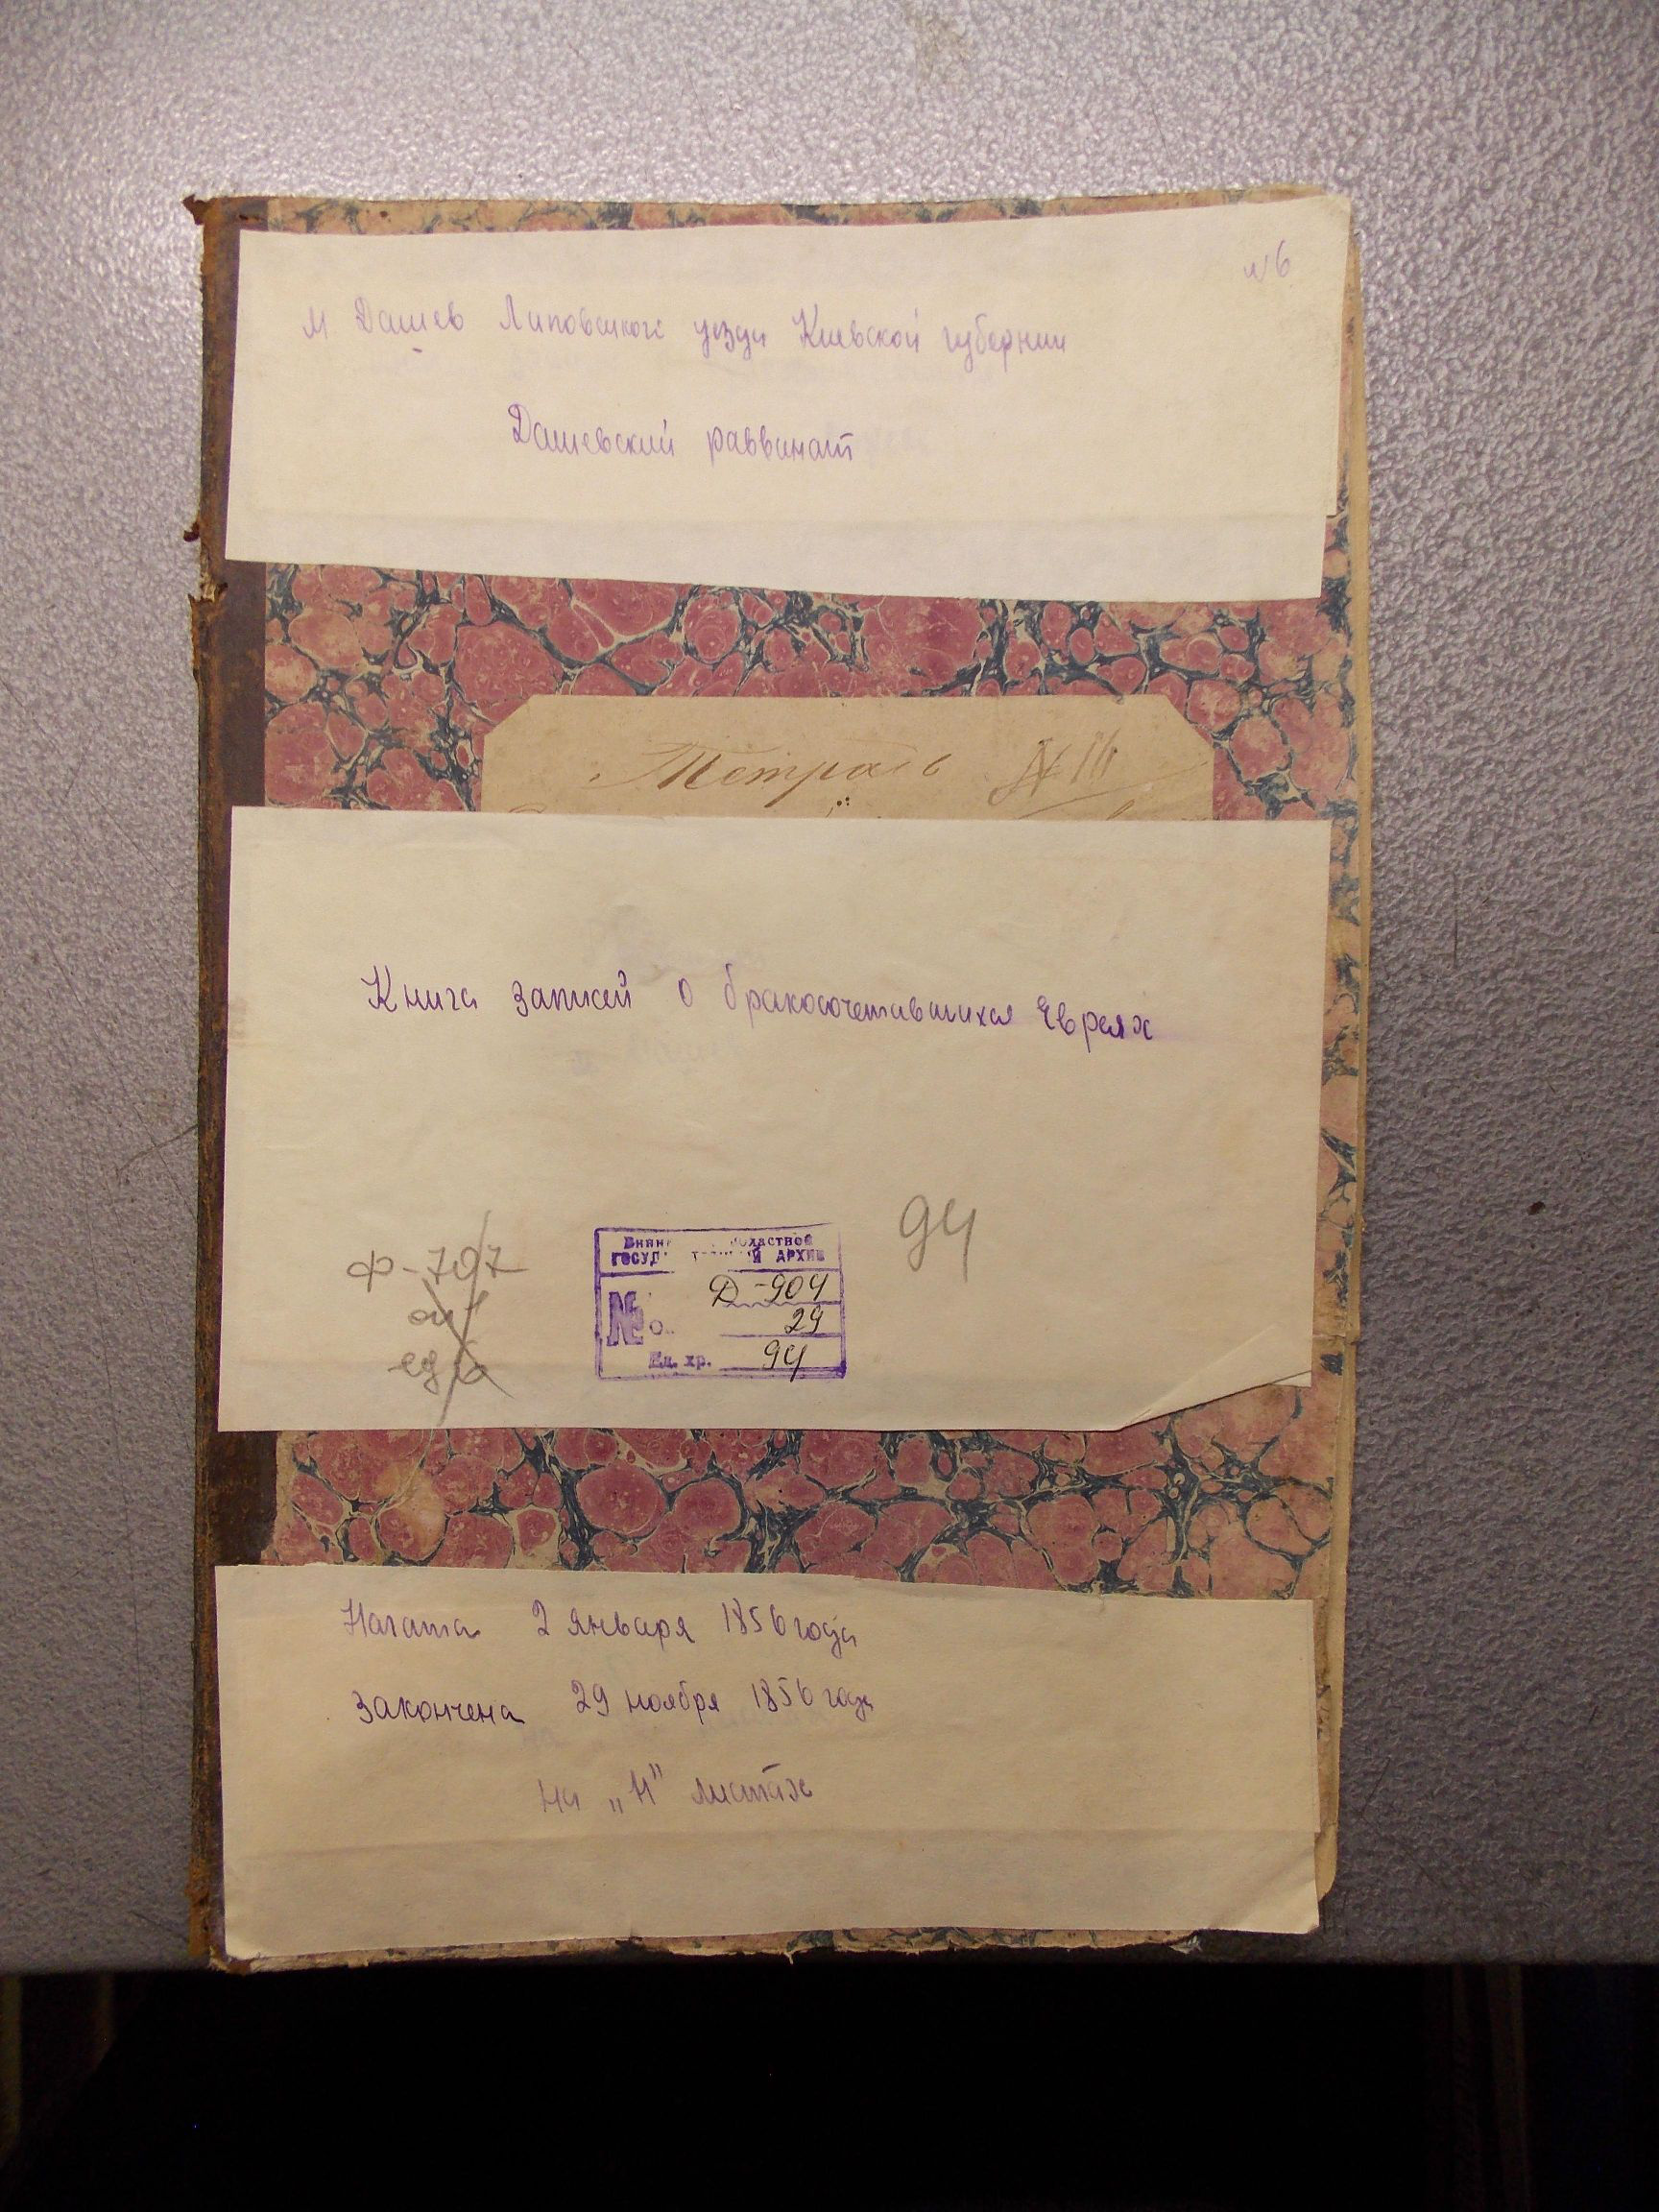 №6
м Дашев Липовецкого уезда Киевской губернии
Дашевский раввинат
Тетрадь № III
Книга записей о бракосочетавшихся Евреях
94
Ф-707
оп 1
ед 6
ГОСУД АРХИВ
№ Д-904
О. 29
Ед. хр. 94
Начата 2 января 1856 года
Закончена 29 ноября 1856 года
на „11" листах